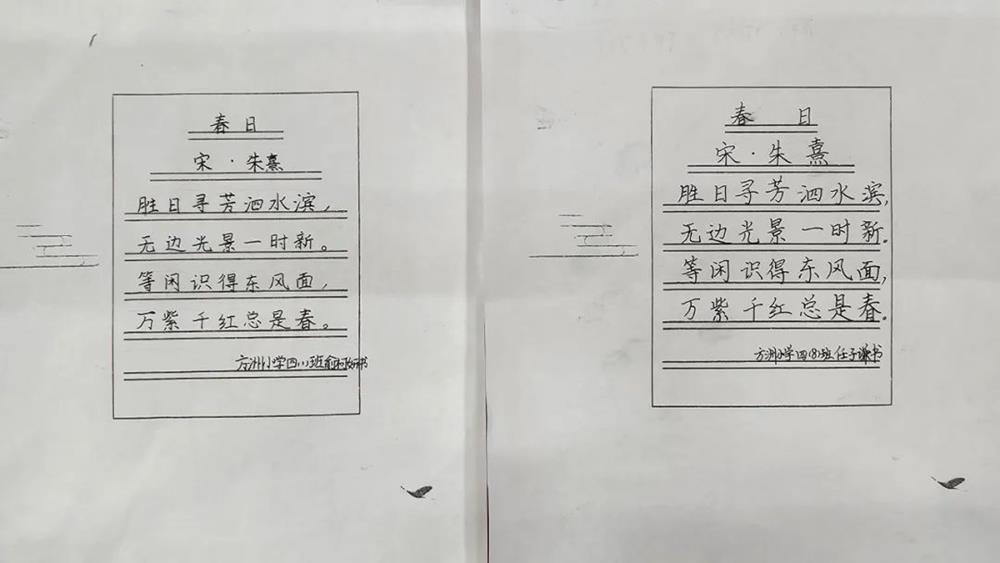 春日
宋·朱熹
胜日寻芳泗水滨，
无边光景一时新。
等闲识得东风面，
万紫千红总是春。
方洲小学四(1)班
春日
宋·朱熹
胜日寻芳泗水滨，
无边光景一时新。
等闲识得东风面，
万紫千红总是春。
方洲小学四(8)班任子谦书